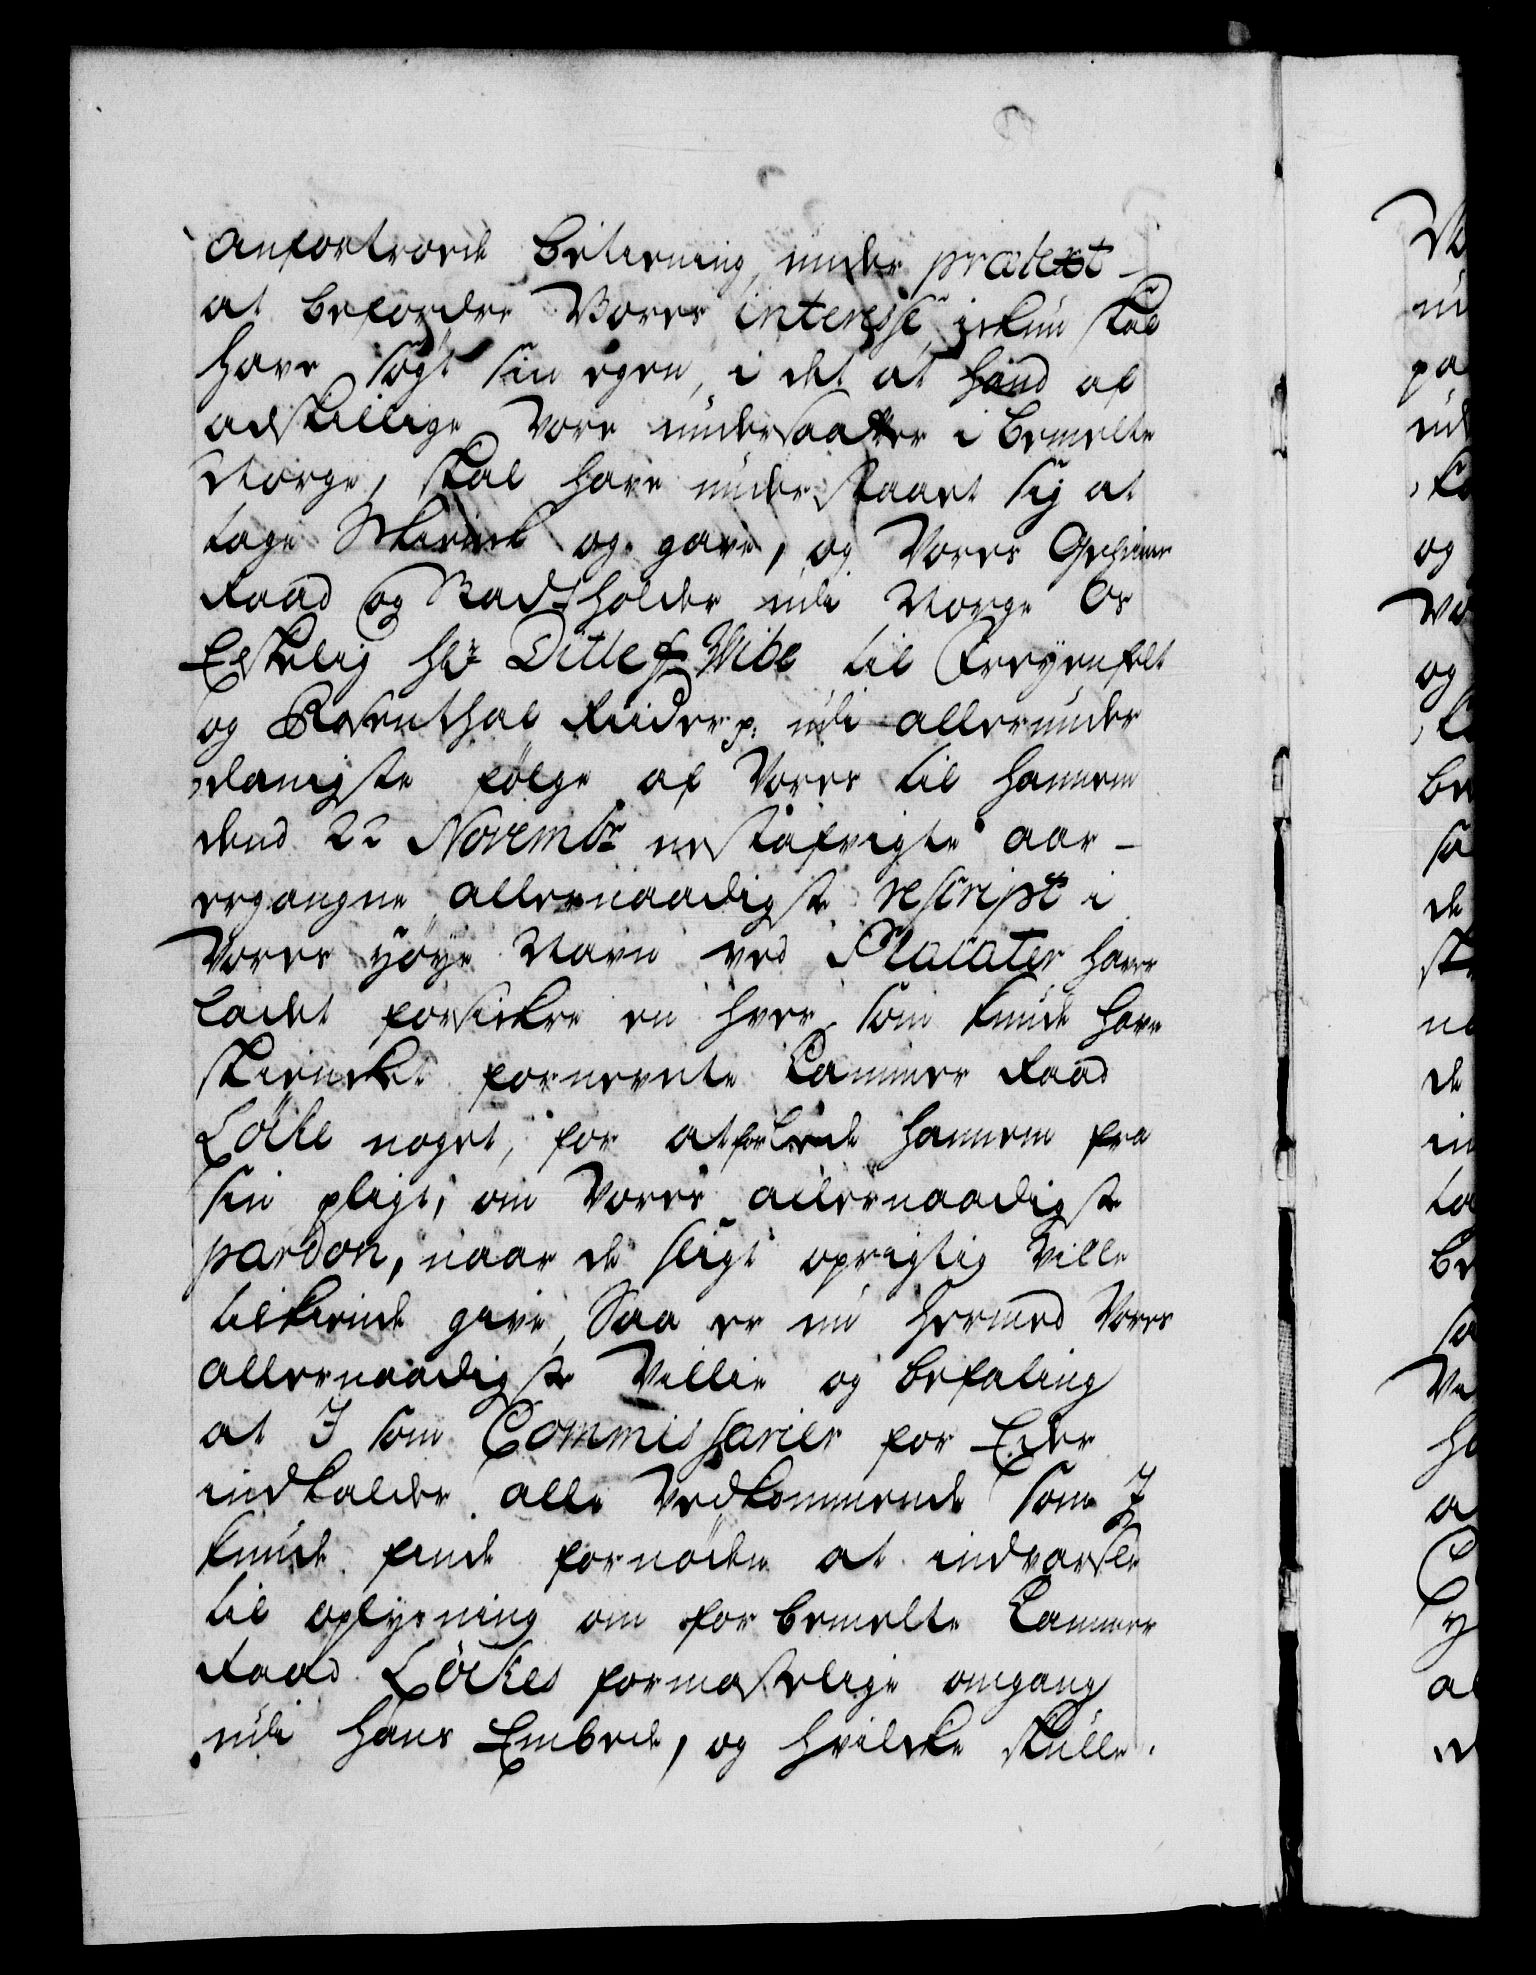 anfortroede betiening, under prætext
at befordre Vores interesse, ickun skal
have søgt sin egen, i det at hand af
adskillige Vore undersaatter i bemelte
Norge, skal have understaaet sig at
tage Skienck og gave, og Vores Geheime
Raad og Stadtholder udi Norge Os
Elskelig Hr Ditlef Wibe til Freyenfelt
og Rosenthal Ridder p. udi allerunder
danigste følge af Vores til hannem
dend 22 Novembr nestafvigte aar
ergangne allernaadigste rescript i
Vores høye Navn ved Placater haver
ladet forsickre en hver, som kunde have
skiencket fornevnte Cammer Raad
Löcke noget, for at forleede hannem fra
sin pligt, om Vores allernaadigste
pardon, naar de sligt oprigtig Ville
tilkiende give, Saa er nu hermed Vores
allernaadigste Villie og befaling
at I som Commissarier for Eder
indkalder alle Vedkommende som I
kunde finde fornøden at indvarsle
til oplysning om forbemelte Cammer
Raad Löckes formastelige omgang
udi hans Embede, og hvilcke skulle